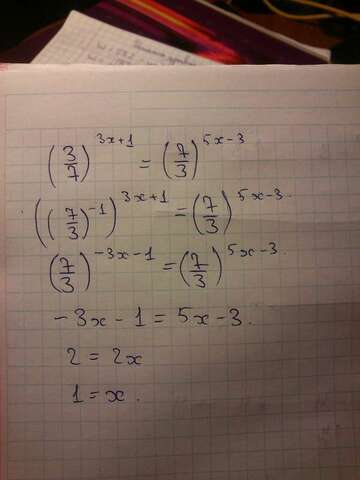 (3/7)^(3x+1) = (7/3)^(5x-3)
((7/3)^(-1))^(3x+1) = (7/3)^(5x-3).
(7/3)^(-3x-1) = (7/3)^(5x-3).
-3x - 1 = 5x - 3.
2 = 2x
1 = x.